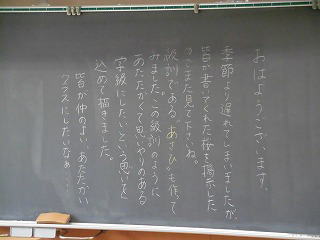 おはようございます。
季節より遅れてしまいましたが、
皆が書いてくれた桜を掲示した
ので、また見て下さいね。
級訓である、"あさひ"も作って
みました。この級訓のように
あたたかくて思いやりのある
学級にしたい、という思いを
込めて描きました。
皆が仲のよい、あたたかい
クラスにしたいなぁ…